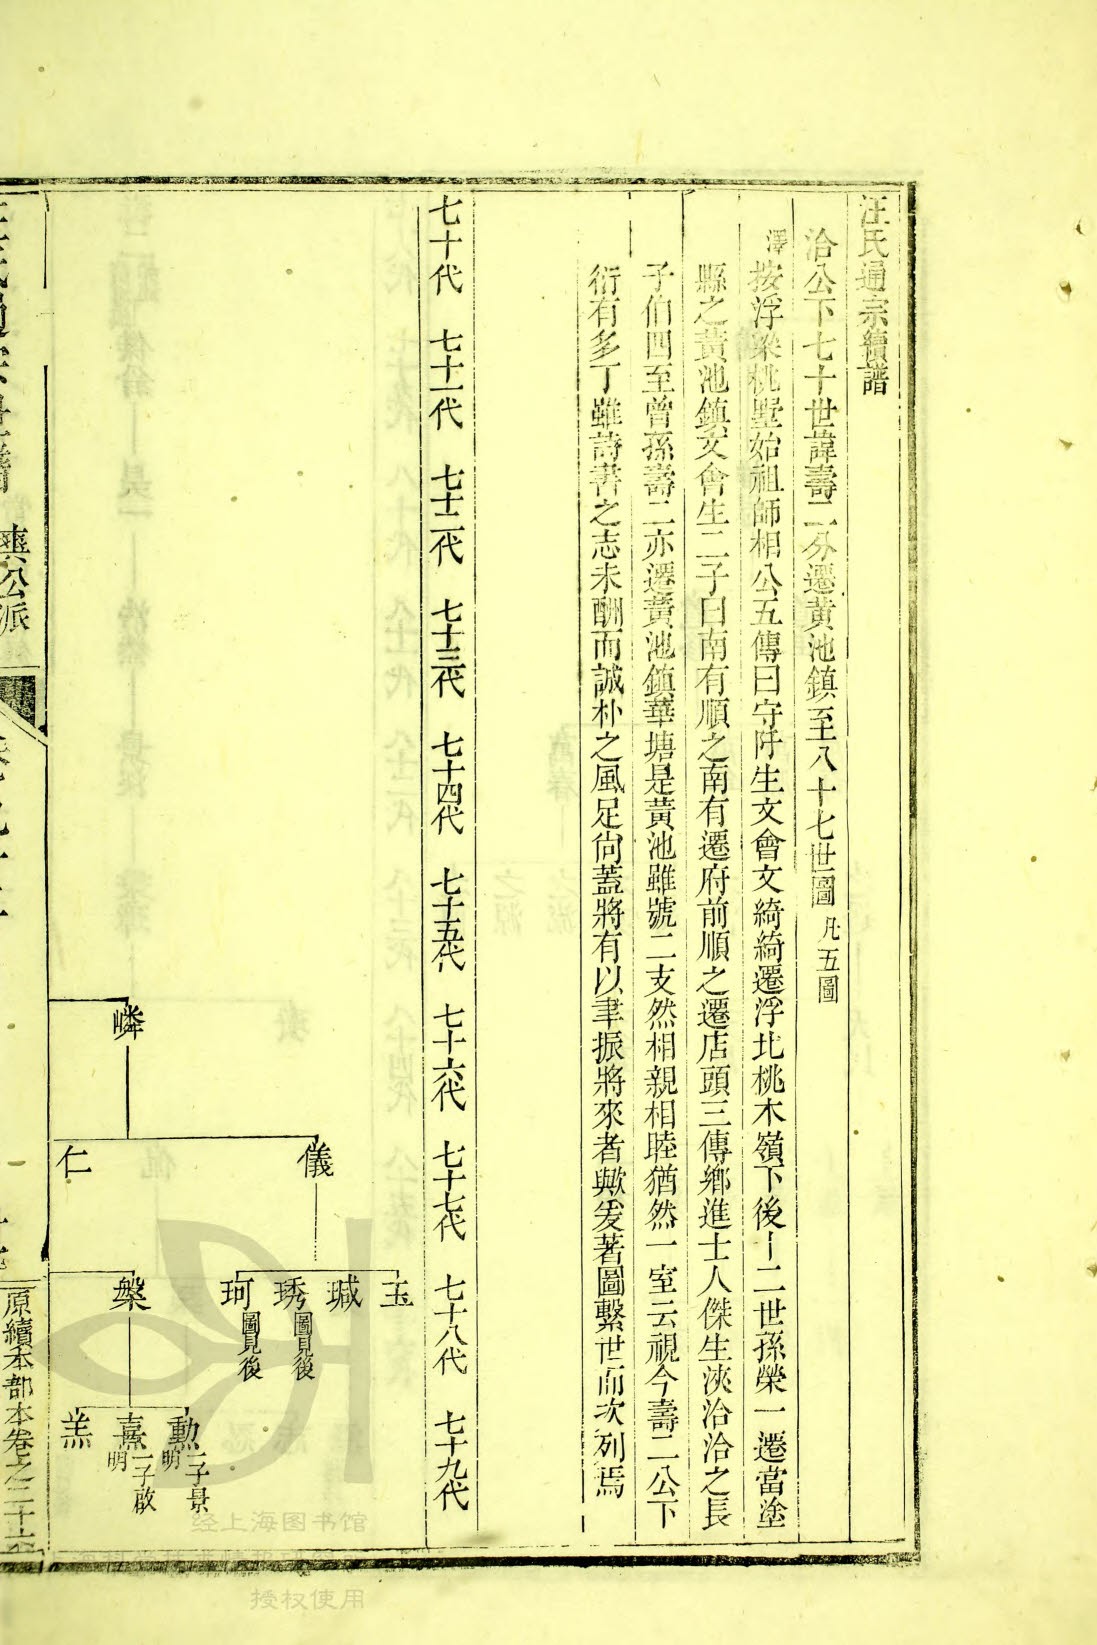 汪氏通宗續譜
洽公下七十世諱壽二外遷黃池鎮至八十七世圖 凡五圖
澤按浮梁桃墅始祖師相公五傳曰守阡生文會文綺綺遷浮北桃木嶺下後十二世孫榮一遷當塗
縣之黃池鎮文會生二子曰南有順之南有遷府前順之遷店頭三傳鄉進士人傑生浹洽洽之長
子伯四至曾孫壽二亦遷黃池鎮華塘是黃池雖號二支然相親相睦猶然一室云視今壽二公下
衍有多丁雖詩書之志未酬而誠朴之風足尚蓋將有以聿振將來者歟爰著圖繫世而次列焉
七十代 七十一代 七十二代 七十三代 七十四代 七十五代 七十六代 七十七代 七十八代 七十九代
嶙
儀
仁
玉
瑊
琇 圖見後
珂 圖見後
槃
勳 一子景明
熹 一子啟明
羔
爽公派
原續本部本卷之二十六
经上海图书馆
授权使用